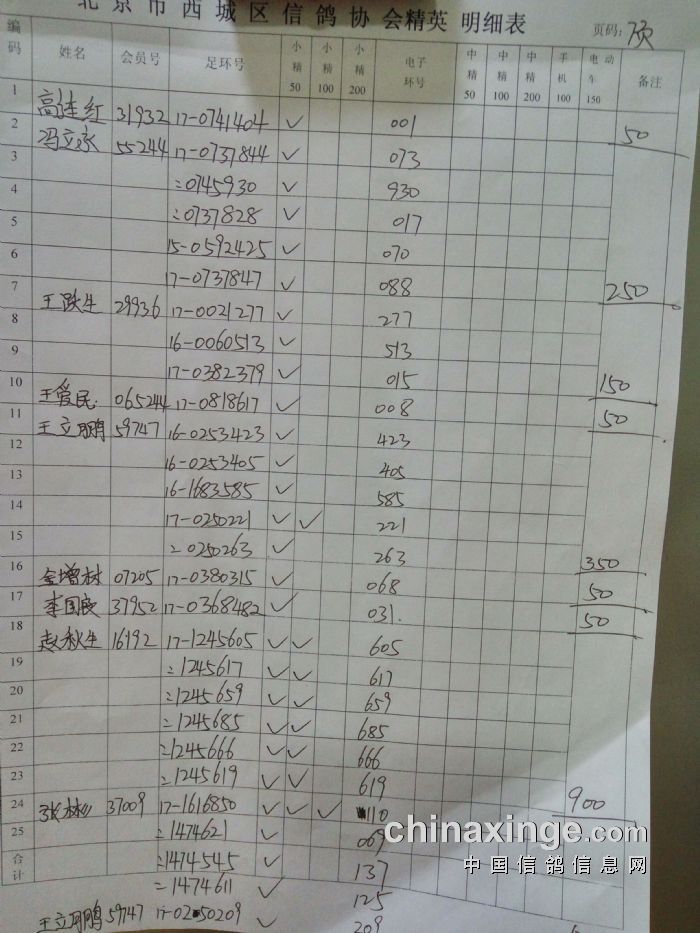 北京市西城区信鸽协会精英 明细表
页码: 7页
编码 姓名 会员号 足环号 小精50 小精100 小精200 电子环号 中精50 中精100 中精200 手机100 电动车150 备注
1
高连红 31932 17-0741404 ✓ 001 50
2
冯立永 55244 17-0737844 ✓ 073
3
=0745930 ✓ 930
4
=0737828 ✓ 017
5
15-0592425 ✓ 070
6
17-0737847 ✓ 088 250
7
王跃生 29936 17-0021277 ✓ 277
8
16-0060513 ✓ 513
9
17-0382379 ✓ 015 150
10
王爱民 065244 17-0818617 ✓ 008 50
11
王立鹏 59747 16-0253423 ✓ 423
12
16-0253405 ✓ 405
13
16-1683585 ✓ 585
14
17-0250221 ✓ ✓ 221
15
=0250263 ✓ 263 350
16
金增林 07205 17-0380315 ✓ 068 50
17
李国良 37952 17-0368482 ✓ 031. 50
18
赵秋生 16192 17-1245605 ✓ ✓ 605
19
=1245617 ✓ ✓ 617
20
=1245659 ✓ ✓ 659
21
=1245685 ✓ ✓ 685
22
=1245666 ✓ ✓ 666
23
=1245619 ✓ ✓ 619 900
24
张林 37009 17-1616850 ✓ ✓ ✓ 110
25
=1474621 ✓ 069
合计
=1474545 ✓ 137
=1474611 ✓ 125
王立鹏 59747 17-0250209 ✓ 209
chinaxinge.com
中国信鸽信息网